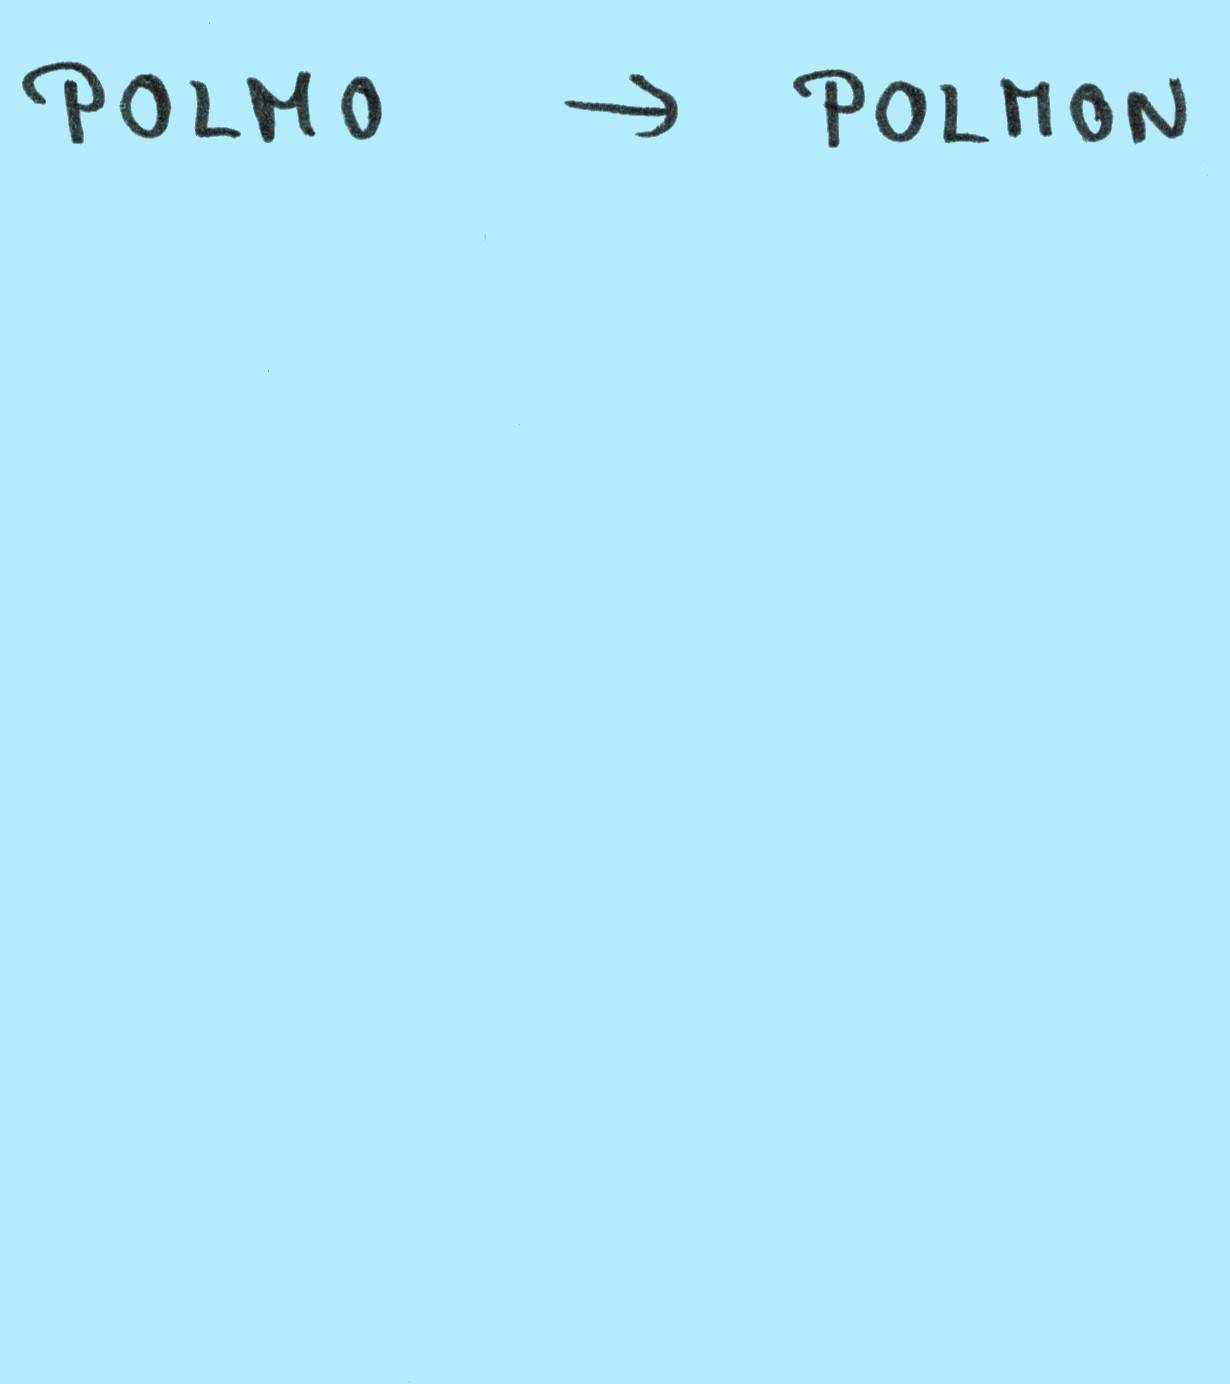 POLMO → POLMON